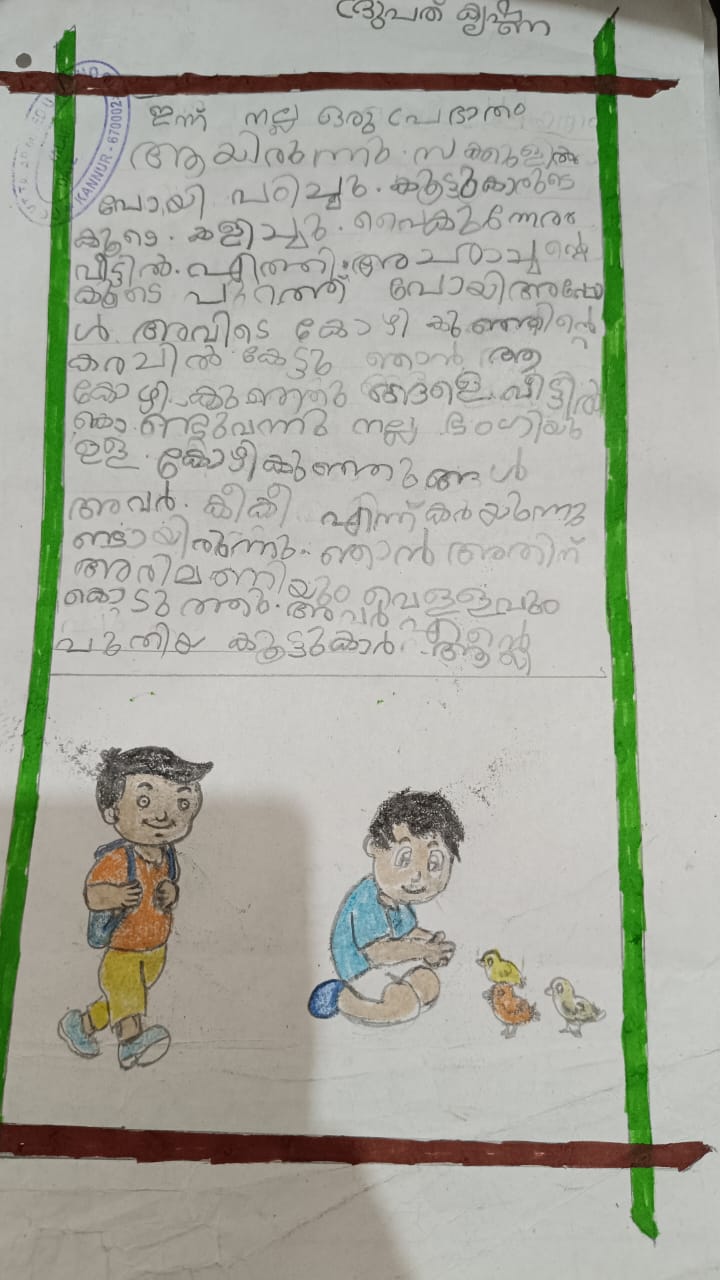 ദ്രുപത് കൃഷ്ണ
KANNUR - 670002
ഇന്ന് നല്ല ഒരു പ്രഭാതം
ആയിരുന്നു. സ്ക്കൂളിൽ
പോയി പഠിച്ചു. കൂട്ടുകാരുടെ
കൂടെ. കളിച്ചു. വൈകുന്നേരം
വീട്ടിൽ. എത്തി. അച്ചാച്ചന്റെ
കൂടെ പുറത്ത് പോയി അപ്പോ
ൾ അവിടെ കോഴി കുഞ്ഞിന്റെ
കരച്ചിൽ കേട്ടു ഞാൻ ആ
കോഴി കുഞ്ഞു ങ്ങളെ വീട്ടിൽ
കൊണ്ടുവന്നു നല്ല ഭംഗിയു
ള്ള കോഴികുഞ്ഞുങ്ങൾ
അവർ. കീകീ എന്ന് കരയുന്നു
ണ്ടായിരുന്നു. ഞാൻ അതിന്
അരിമണിയും വെള്ളവും
കൊടുത്തു. അവർ എന്റെ
പുതിയ കൂട്ടുകാർ ആണ്